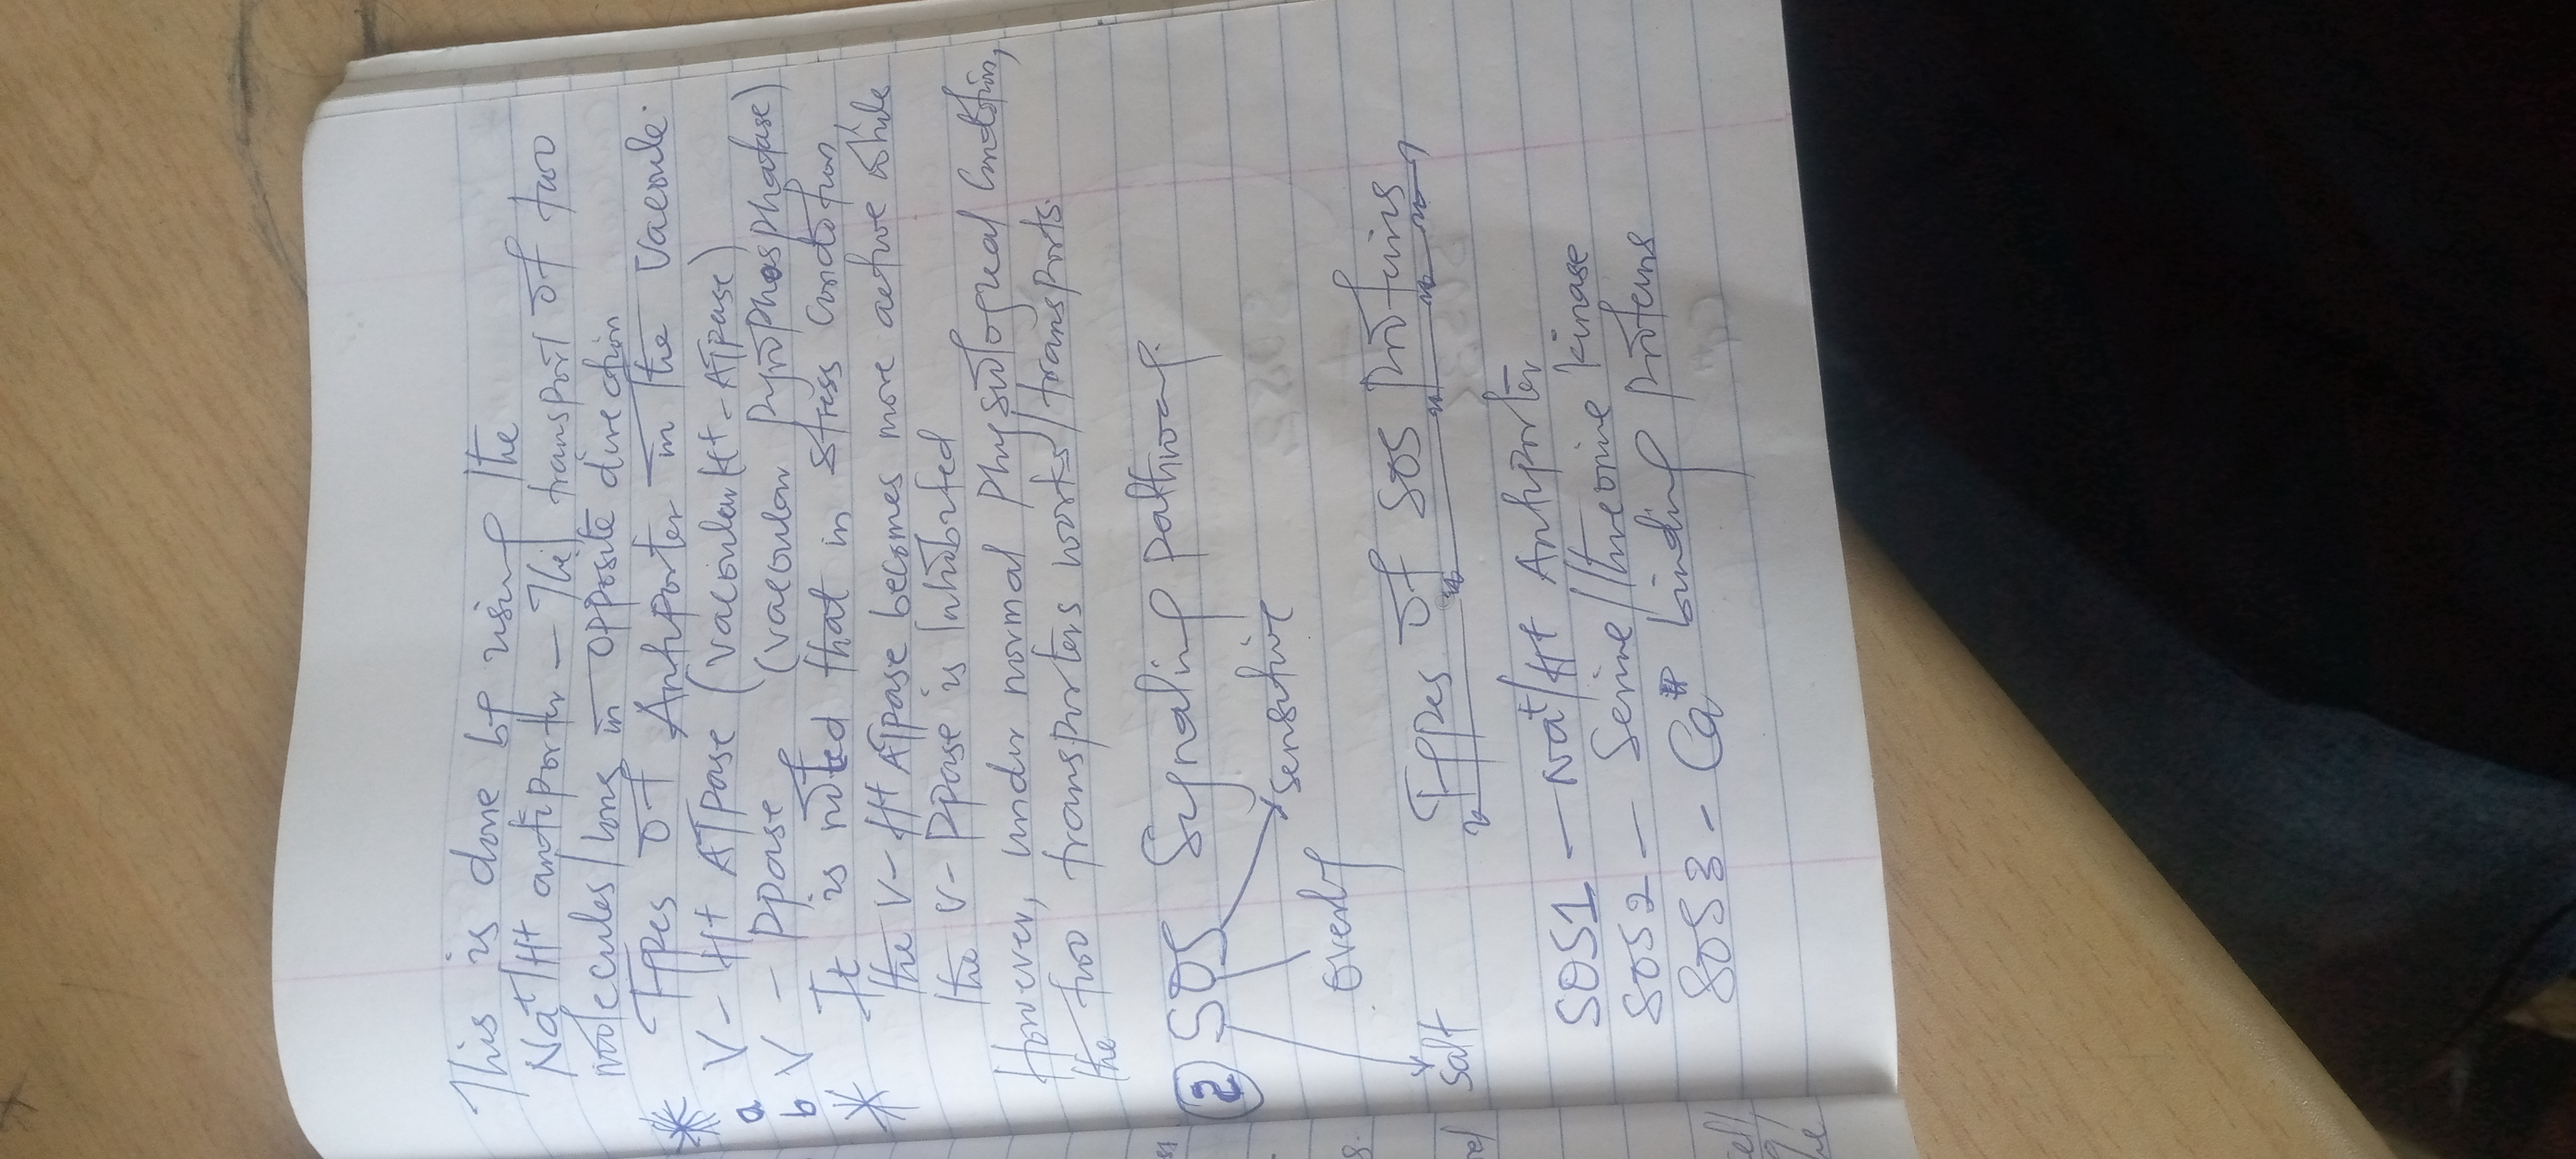 This is done by using the
Na+/H+ antiporter - The transport of two
molecules/ions in opposite direction
* Types of Antiporter in the Vacuole.
a V- H+ ATPase (Vacoular H+-ATPase)
b V - PPase (Vacoular Pyrophosphatase)
* It is noted that in stress condition
the V- H+ ATPase becomes more active while
the V- PPase is Inhibited
However, under normal Physiological Condition,
the two transporters works/transports.
2 SOS Signaling pathway.
sensitive
Overly
Salt
Types of SOS Proteins
SOS1 - Na+/H+ Antiporter
SOS2 - Serine/threonine kinase
SOS3 - Ca++ binding proteins